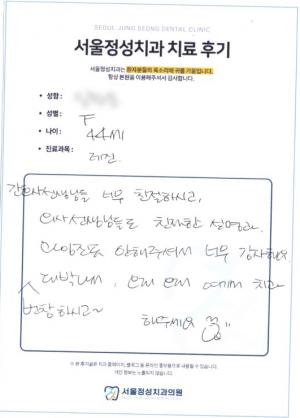 SEOUL JUNG SEONG DENTAL CLINIC
서울정성치과 치료 후기
서울정성치과는 환자분들의 목소리에 귀를 기울입니다.
항상 본원을 이용해주셔서 감사합니다.
• 성함 :
• 성별 : F
• 나이 : 44세
• 진료과목 : 레진
간호사선생님들 너무 친절하시고,
의사선생님들도 친절한 설명과
안해주셔서 너무 감사해요
대박나서, 오래 오래 여기 치과
번창하시고~ 해주세요
※ 본 후기글은 치과 홈페이지, 블로그 등 온라인 홍보용으로 사용될 수 있습니다.
개인 정보는 노출되지 않습니다.
서울정성치과의원
SEOUL JUNG SEONG DENTAL CLINIC